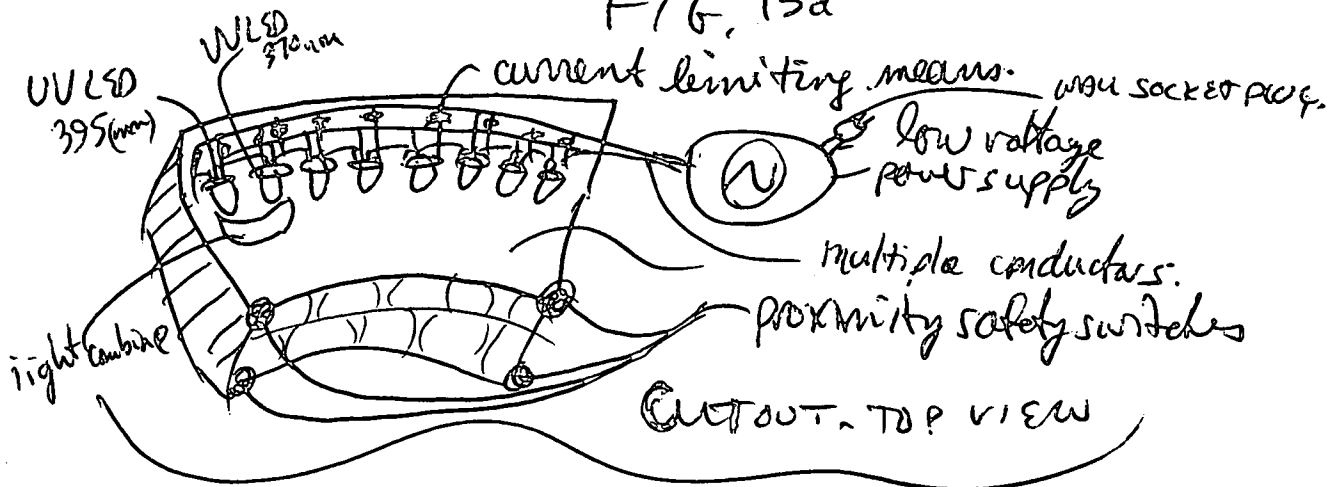 FIG. 13a
UVLED
370nm
UVLED
395(nm)
current limiting means.
WALL SOCKET PLUG.
low voltage
power supply
multiple conductors.
proximity safety switches
light combine
CUTOUT. TOP VIEW